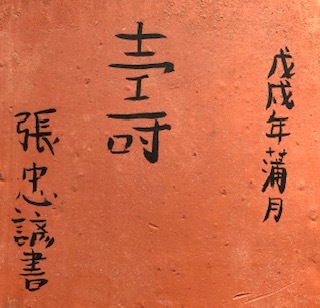 戊戌年蒲月
壽
張忠諺書